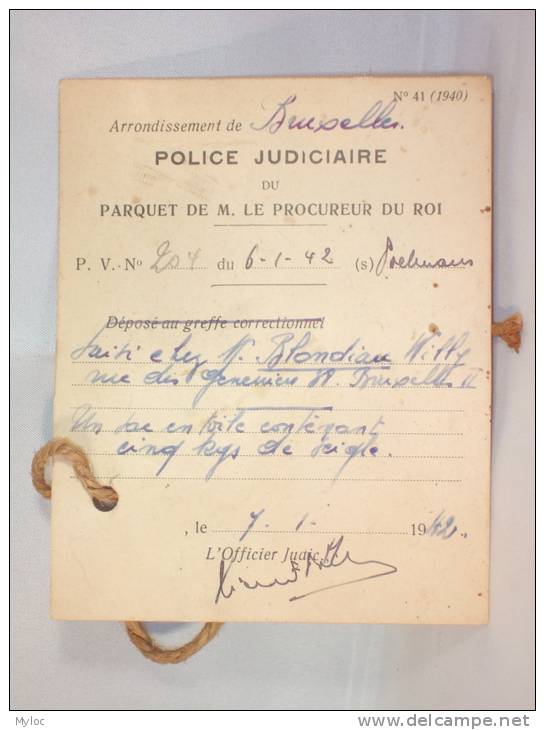 N° 41 (1940)
Arrondissement de Bruxelles.
POLICE JUDICIAIRE
DU
PARQUET DE M. LE PROCUREUR DU ROI
P. V. N° 204 du 6-1-42 (s) Poelmans
Déposé au greffe correctionnel
Saisi chez M. Blondiau Willy
rue des Bruxelles II
Un sac en toile contenant
cinq kgs de seigle.
, le 7-1- 1942.
L'Officier Judic.
Myloc
delcampe.net